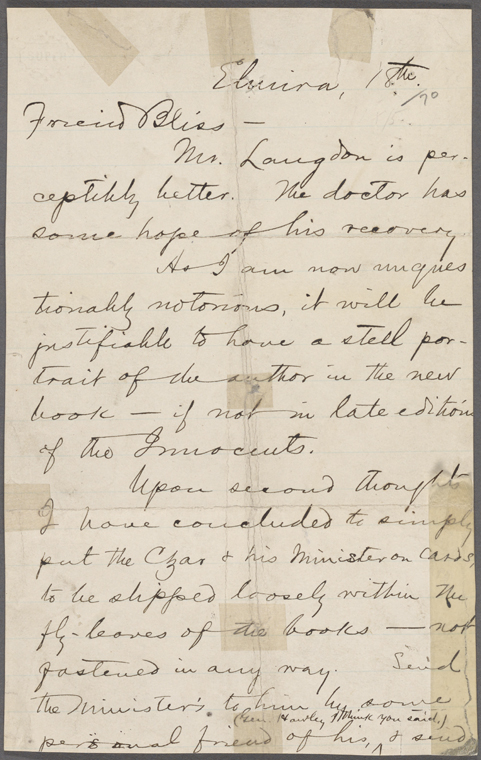 Elmira, 18th.
/70
Friend Bliss —
Mr. Langdon is per-
ceptibly better. The doctor has
some hope of his recovery.
As I am now unques
tionably notorious, it will be
justifiable to have a steel por-
trait of the author in the new
book — if not in late edition
of the Innocents.
Upon second thoughts
I have concluded to simply
put the Czar & his Minister on cards,
to be slipped loosely within the
fly-leaves of the books — not
fastened in any way. Send
the Minister's to him by some
(Gen. Hawley, I think you said,)
personal friend of his, ^ & send